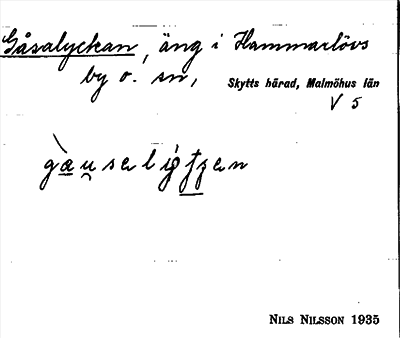 Gåsalyckan, äng i Hammarlövs
by o. sn,
Skytts härad, Malmöhus län
V 5
gæu̯salig̍ʃʒan
NILS NILSSON 1935